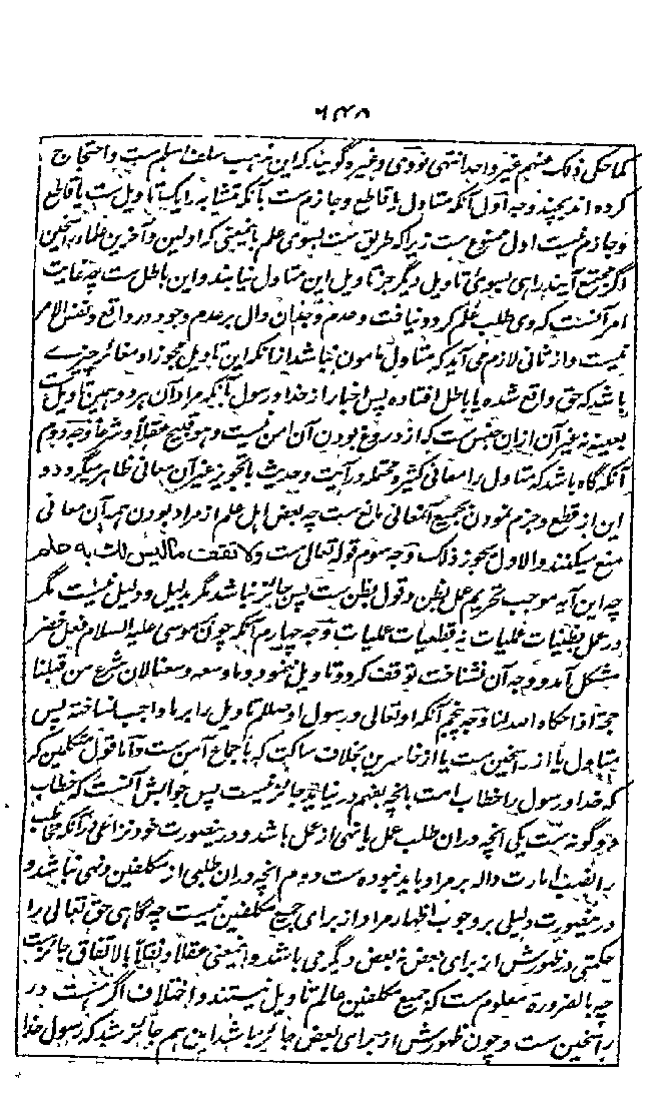 کما حکی ذلک منهم غیر واحد انتهی نووی وغیره گویند که این مذهب سلف اسلم ست واحتجاج
کرده اند بچند وجه اول آنکه متاول یا قاطع وجازم ست بآنکه متشابه را یک تاویل ست یا قاطع
وجازم نیست اول ممنوع ست زیراکه طریق نیست بسوی علم باینمعنی که اولین وآخرین علماء راسخین
اگر مجتمع آیند راهی بسوی تاویل دیگر جز تاویل این متاول نیابند واین باطل ست چه غایت
امر آنست که وی طلب علم کرد ونیافت وعدم وجدان دال بر عدم وجود در واقع ونفس الامر
نیست واز ثانی لازم می آید که متاول مامون نباشد از آنکه این تاویل مجوز او مغائر چیزے
باشد که حق واقع شده یا باطل افتاده پس اخبار از خدا ورسول بآنکه مراد آن هر دو همین تاویل ست
بعینه نه غیر آن ازان جنس ست که از دروغ بودن آن امن نیست وهو قبیح عقلا وشرعا وجه دوم
آنکه گاه باشد که متاول را معانی کثیر ومحتمله در آیت وحدیث با تجویز غیر آن معانی ظاهر میگردد و
این از قطع وجزم نمودن بجمیع آنمعانی مانع ست چه بعض اهل علم از مراد بودن همه آن معانی
منع میکنند والاول یجوز ذلک وجه سوم قوله تعالی ست ولا تقف ما لیس لک به علم
چه این آیه موجب تحریم عمل بظن وقول بظن ست پس جائز نباشد مگر بدلیل ودلیل نیست مگر
در عمل بظنیات عملیات نه قطعیات علمیات وجه چهارم آنکه چون موسی علیه السلام فعل خضر
مشکل آمد ووجه آن نشناخت توقف کرد وتاویل ننمود وما وسعه وسعنا لان شرع من قبلنا
حجة اذا حکاه الله لنا وجه پنجم آنکه او تعالی ورسول او صلعم تاویل را بر ما واجب نساخته پس
متاول یا از راسخین ست یا از خاسرین بخلاف ساکت که باجماع آمن ست واما قول متکلمین که
که خدا ورسول را خطاب امت بآنچه بفهم در نیاید جائز نیست پس جوابش آنست که خطاب
دو گونه ست یکی آنچه دران طلب عمل یا نهی از عمل باشد ودرینصورت خود نزاعی نه زآنکه مخاطب
را نصب امارت داله بر مراد باید نموده ست دوم آنچه دران طلبی از مکلفین ونهی نباشد و
درینصورت دلیلی بر وجوب اظهار مراد از برای جمیع مکلفین نیست چه گاهی حق تعالی را
حکمتی در ظهورش از برای بعض نه بعض دیگر می باشد واینمعنی عقلا ونقلا بالاتفاق جائز ست
چه بالضرورة معلوم ست که جمیع مکلفین عالم تاویل نیستند واختلاف اگر هست در
راسخین ست وچون ظهورش از برای بعض جائز باشد این هم جائز شد که رسول خدا